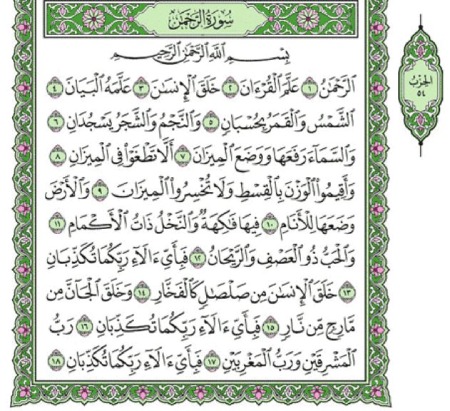 سُورَةُ الرَّحْمَٰن
بِسْمِ ٱللَّهِ ٱلرَّحْمَٰنِ ٱلرَّحِيمِ
ٱلرَّحْمَٰنُ ١ عَلَّمَ ٱلْقُرْءَانَ ٢ خَلَقَ ٱلْإِنسَٰنَ ٣ عَلَّمَهُ ٱلْبَيَانَ ٤
ٱلشَّمْسُ وَٱلْقَمَرُ بِحُسْبَانٍ ٥ وَٱلنَّجْمُ وَٱلشَّجَرُ يَسْجُدَانِ ٦
وَٱلسَّمَآءَ رَفَعَهَا وَوَضَعَ ٱلْمِيزَانَ ٧ أَلَّا تَطْغَوْا۟ فِى ٱلْمِيزَانِ ٨
وَأَقِيمُوا۟ ٱلْوَزْنَ بِٱلْقِسْطِ وَلَا تُخْسِرُوا۟ ٱلْمِيزَانَ ٩ وَٱلْأَرْضَ
وَضَعَهَا لِلْأَنَامِ ١٠ فِيهَا فَٰكِهَةٌ وَٱلنَّخْلُ ذَاتُ ٱلْأَكْمَامِ ١١
وَٱلْحَبُّ ذُو ٱلْعَصْفِ وَٱلرَّيْحَانُ ١٢ فَبِأَىِّ ءَالَآءِ رَبِّكُمَا تُكَذِّبَانِ
١٣ خَلَقَ ٱلْإِنسَٰنَ مِن صَلْصَٰلٍ كَٱلْفَخَّارِ ١٤ وَخَلَقَ ٱلْجَآنَّ مِن
مَّارِجٍ مِّن نَّارٍ ١٥ فَبِأَىِّ ءَالَآءِ رَبِّكُمَا تُكَذِّبَانِ ١٦ رَبُّ
ٱلْمَشْرِقَيْنِ وَرَبُّ ٱلْمَغْرِبَيْنِ ١٧ فَبِأَىِّ ءَالَآءِ رَبِّكُمَا تُكَذِّبَانِ ١٨
الحِزْبُ
٥٤